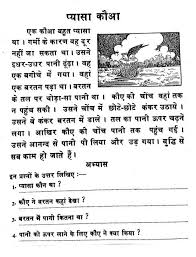 प्यासा कौआ
एक कौआ बहुत प्यासा
था । गर्मी के कारण वह दूर
नहीं जा सकता था । उसने
इधर-उधर पानी ढूंढ़ा । वह
एक बगीचे में गया । वहां
एक बरतन पड़ा था । बरतन
के तल पर थोड़ा-सा पानी था । कौए की चोंच वहां तक
न पहुंच सकी । उसने चोंच में छोटे-छोटे कंकर उठाये ।
उसने वे कंकर बरतन में डाले । तल का पानी ऊपर चढ़ने
लगा । आखिर कौए की चोंच पानी तक पहुंच गई ।
उसने आनन्द से पानी पी लिया और उड़ गया । बुद्धि से
सब काम हो जाते हैं ।
अभ्यास
इन प्रश्नों के उत्तर लिखिए :—
१. प्यासा कौन था ?
२. कौए ने बरतन कहां देखा ?
३. बरतन में पानी कितना था ?
४. पानी को ऊपर लाने के लिए कौए ने क्या किया ?